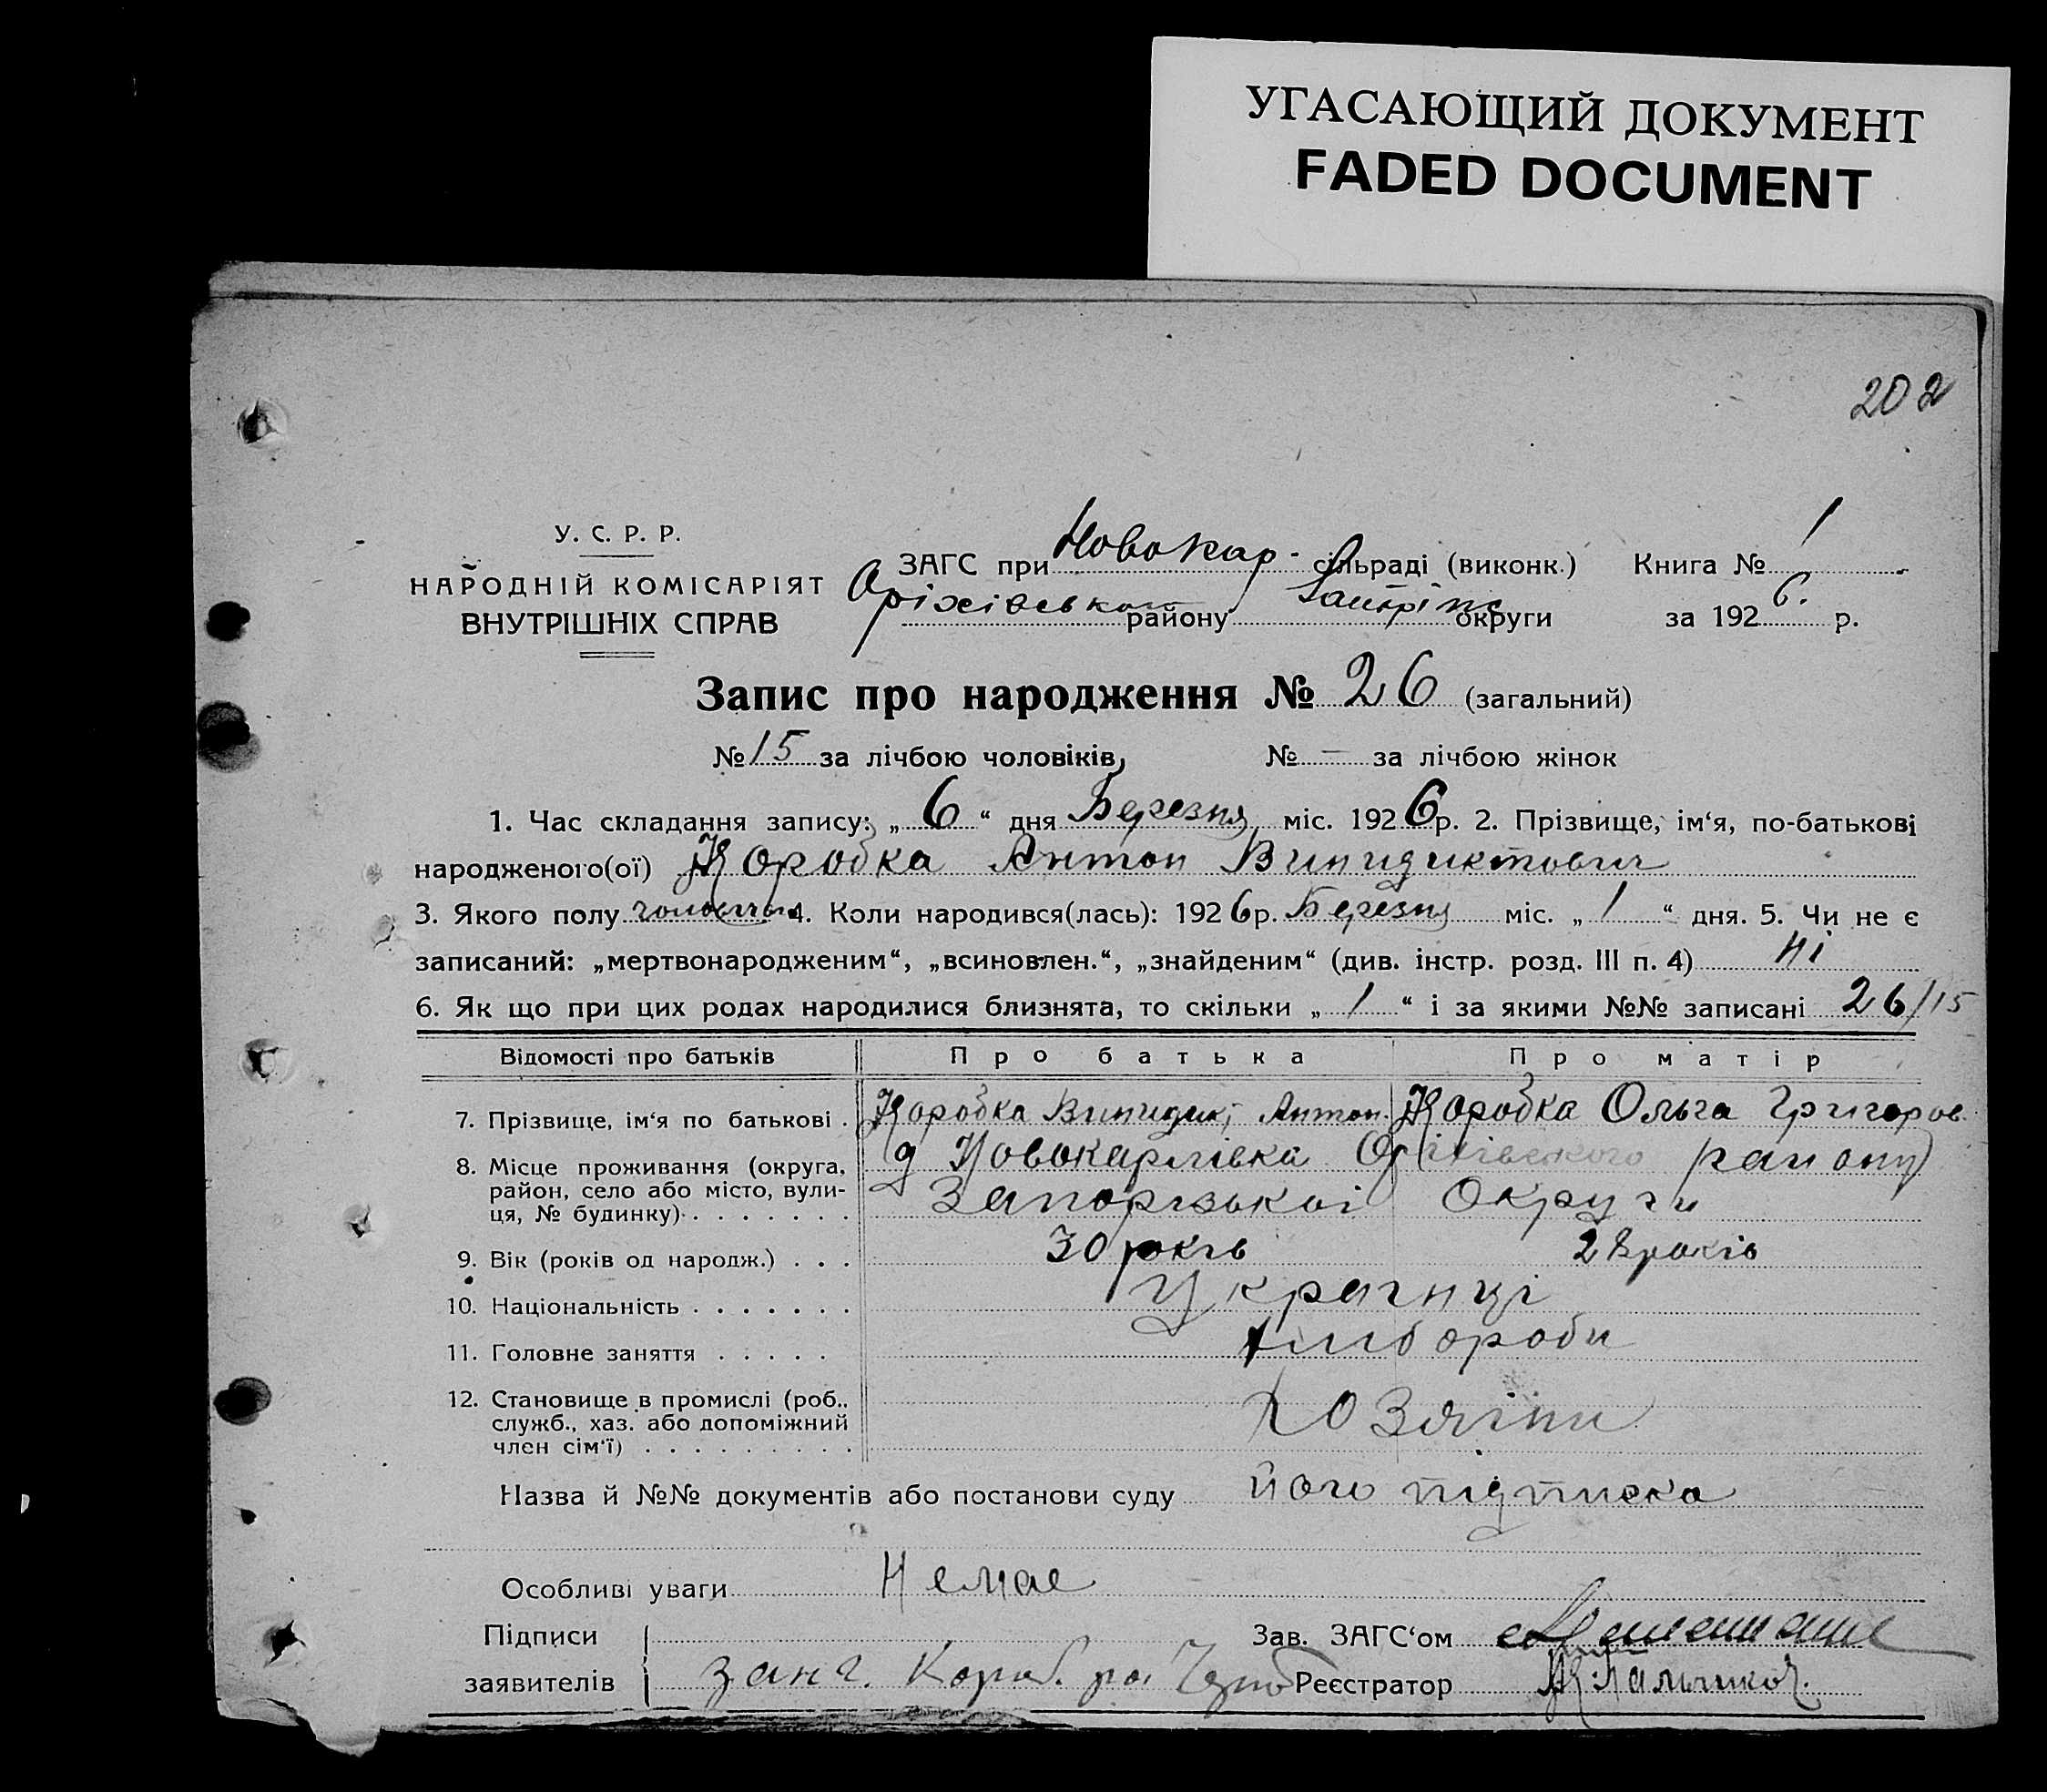 УГАСАЮЩИЙ ДОКУМЕНТ
FADED DOCUMENT
202
У. С. Р. Р.
НАРОДНІЙ КОМІСАРІЯТ
ВНУТРІШНІХ СПРАВ
ЗАГС при Новокар- сільраді (виконк.) Книга № 1
Оріхівського району округи за 1926. р.
Запис про народження № 26 (загальний)
№ 15 за лічбою чоловіків, № — за лічбою жінок
1. Час складання запису: „ 6 “ дня Березня міс. 1926 р. 2. Прізвище, ім‘я, по-батькові
народженого(ої) Коробка Антон Винидиктович
3. Якого полу 4. Коли народився(лась): 1926 р. Березня міс. „ 1 “ дня. 5. Чи не є
записаний: „мертвонародженим“, „всиновлен.“, „знайденим“ (див. інстр. розд. III п. 4) ні
6. Як що при цих родах народилися близнята, то скільки „ 1 “ і за якими №№ записані 26/15
Відомості про батьків Про батька Про матір
7. Прізвище, ім‘я по батькові . Коробка Винидикт Антон. Коробка Ольга Григоров.
8. Місце проживання (округа, Новокарлівка Оріхівського району
район, село або місто, вули- Запорізької Округи
ця, № будинку) . . . . . . .
9. Вік (років од народж.) . . . 30 років 28 років
10. Національність . . . . . . . Українці
11. Головне заняття . . . . . хлібороби
12. Становище в промислі (роб., Хозяїни
служб., хаз. або допоміжний
член сім‘ї) . . . . . . . . .
Назва й №№ документів або постанови суду його підписка
Особливі уваги Немае
Підписи Зав. ЗАГС‘ом
заявителів Короб. Реєстратор